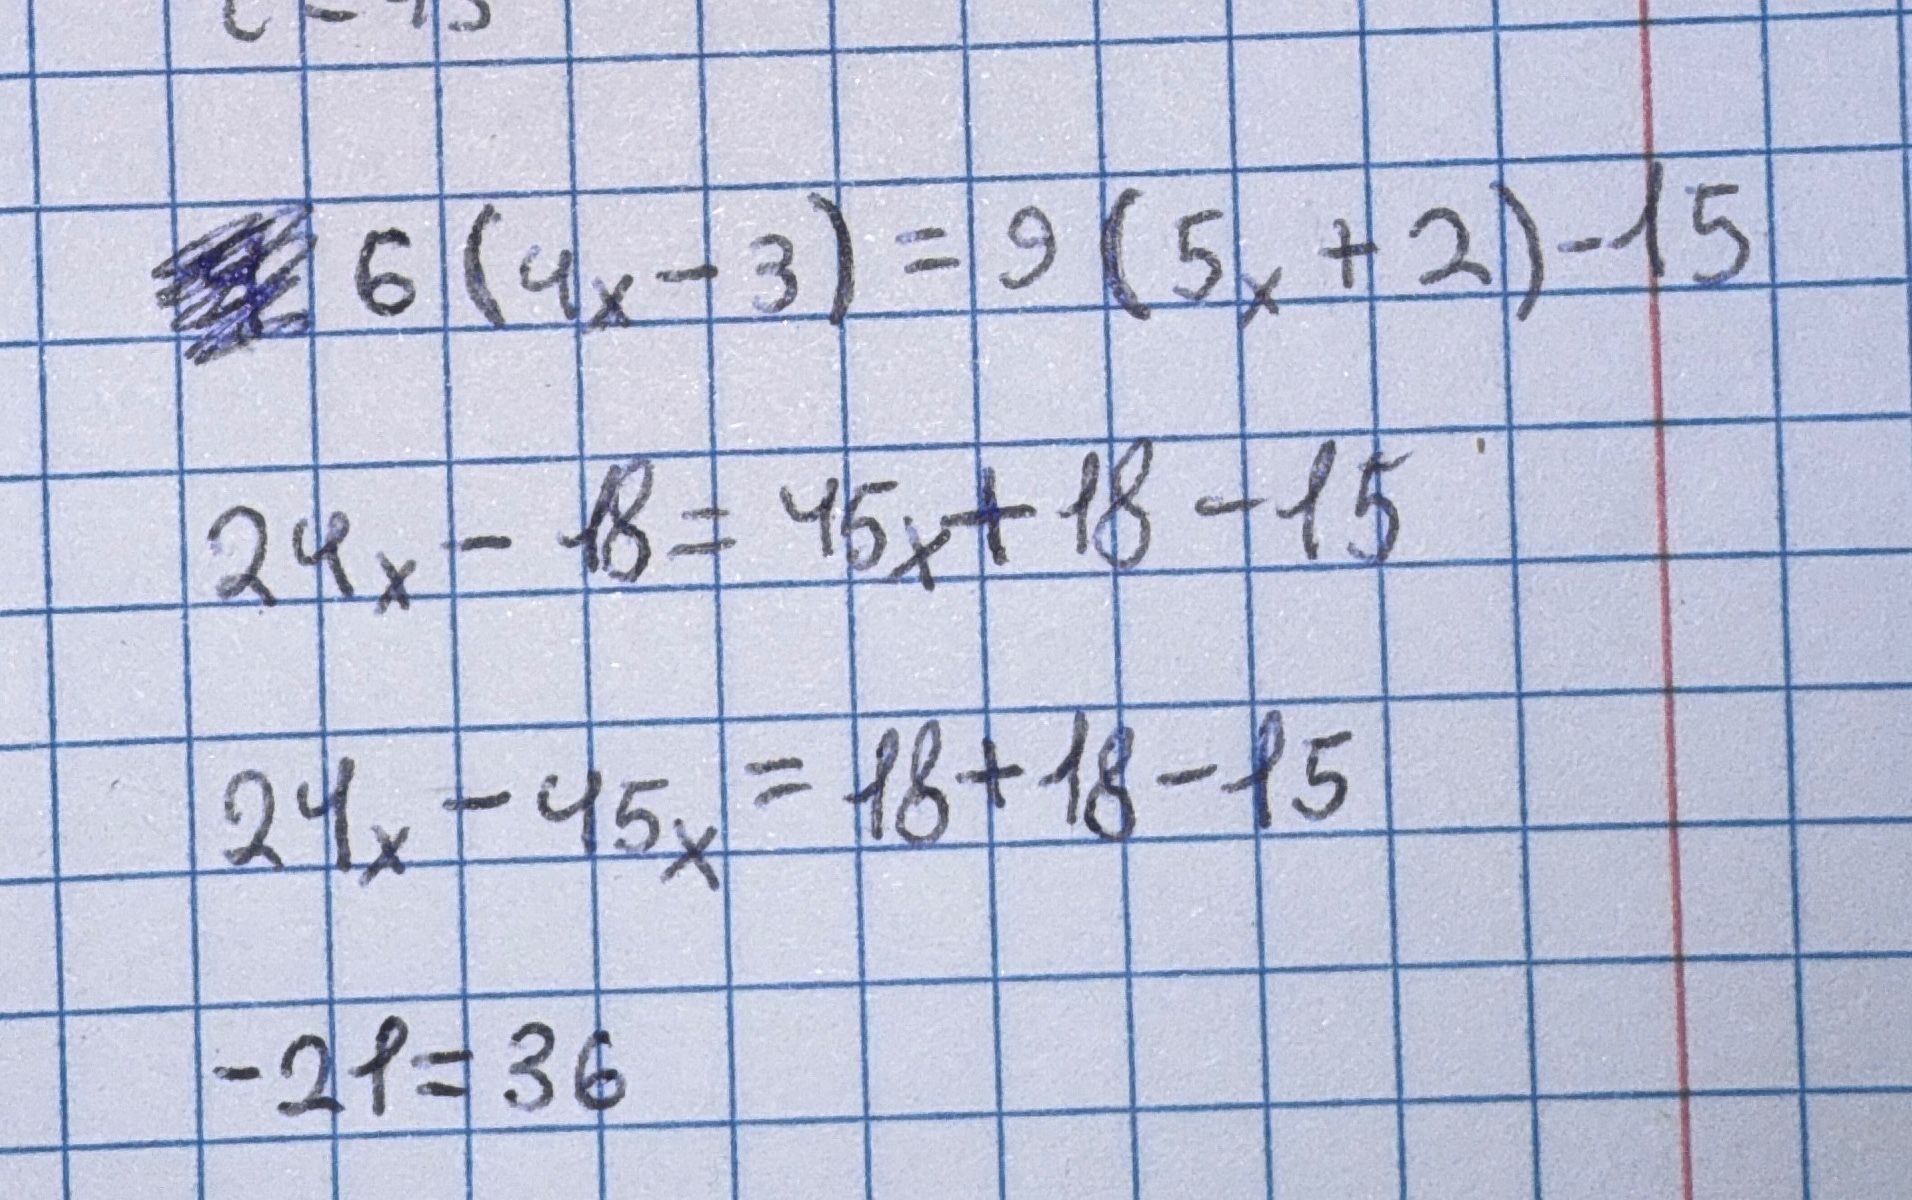 6(4x-3)=9(5x+2)-15
24x-18=45x+18-15
24x-45x=18+18-15
-21=36